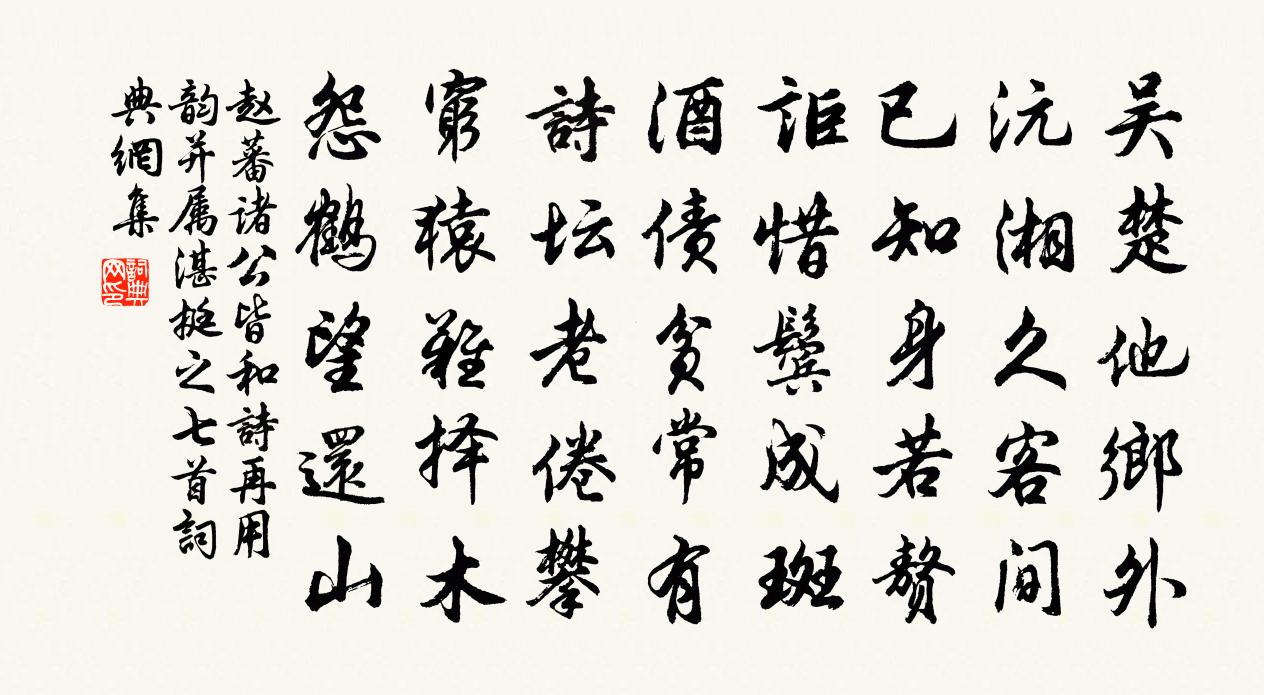 吴楚他鄉外
沅湘久客间
已知身若赘
詎惜鬓成斑
酒债贫常有
詩坛老倦攀
窮猿難择木
怨鶴望還山
赵蕃诸公皆和詩再用
韵并属湛挺之七首詞
典網集
詞典网印